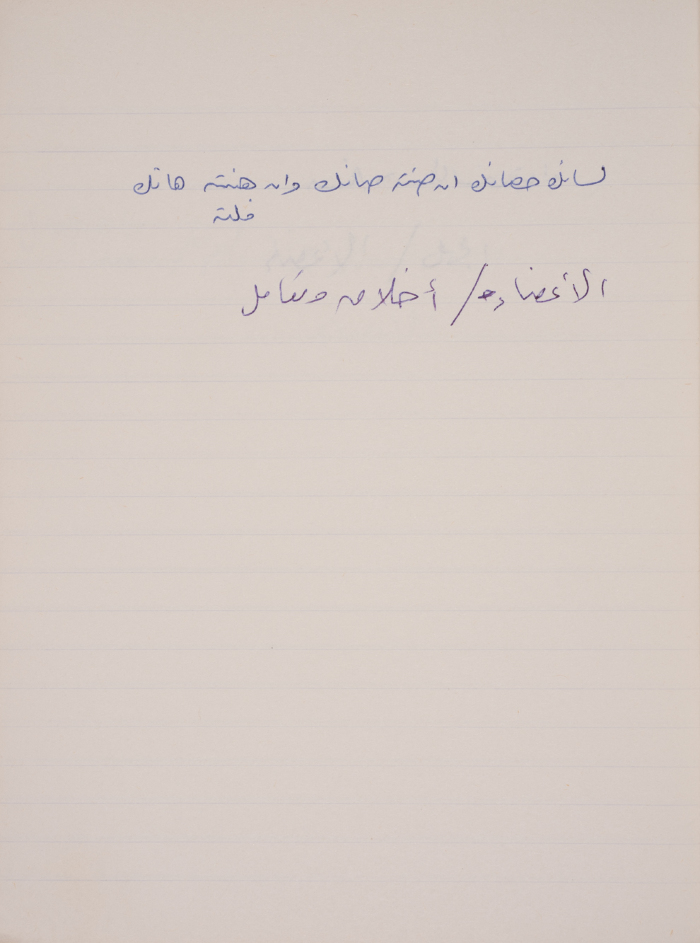 لسانك حصانك ان صنته صانك وان هنته هانك
فلتة
الأعضاء / أخلاق وتعامل